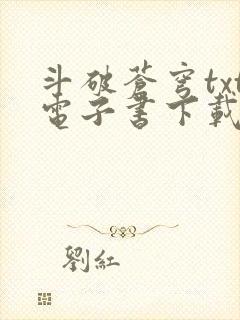 斗破蒼穹txt
電子書下載
劉紅